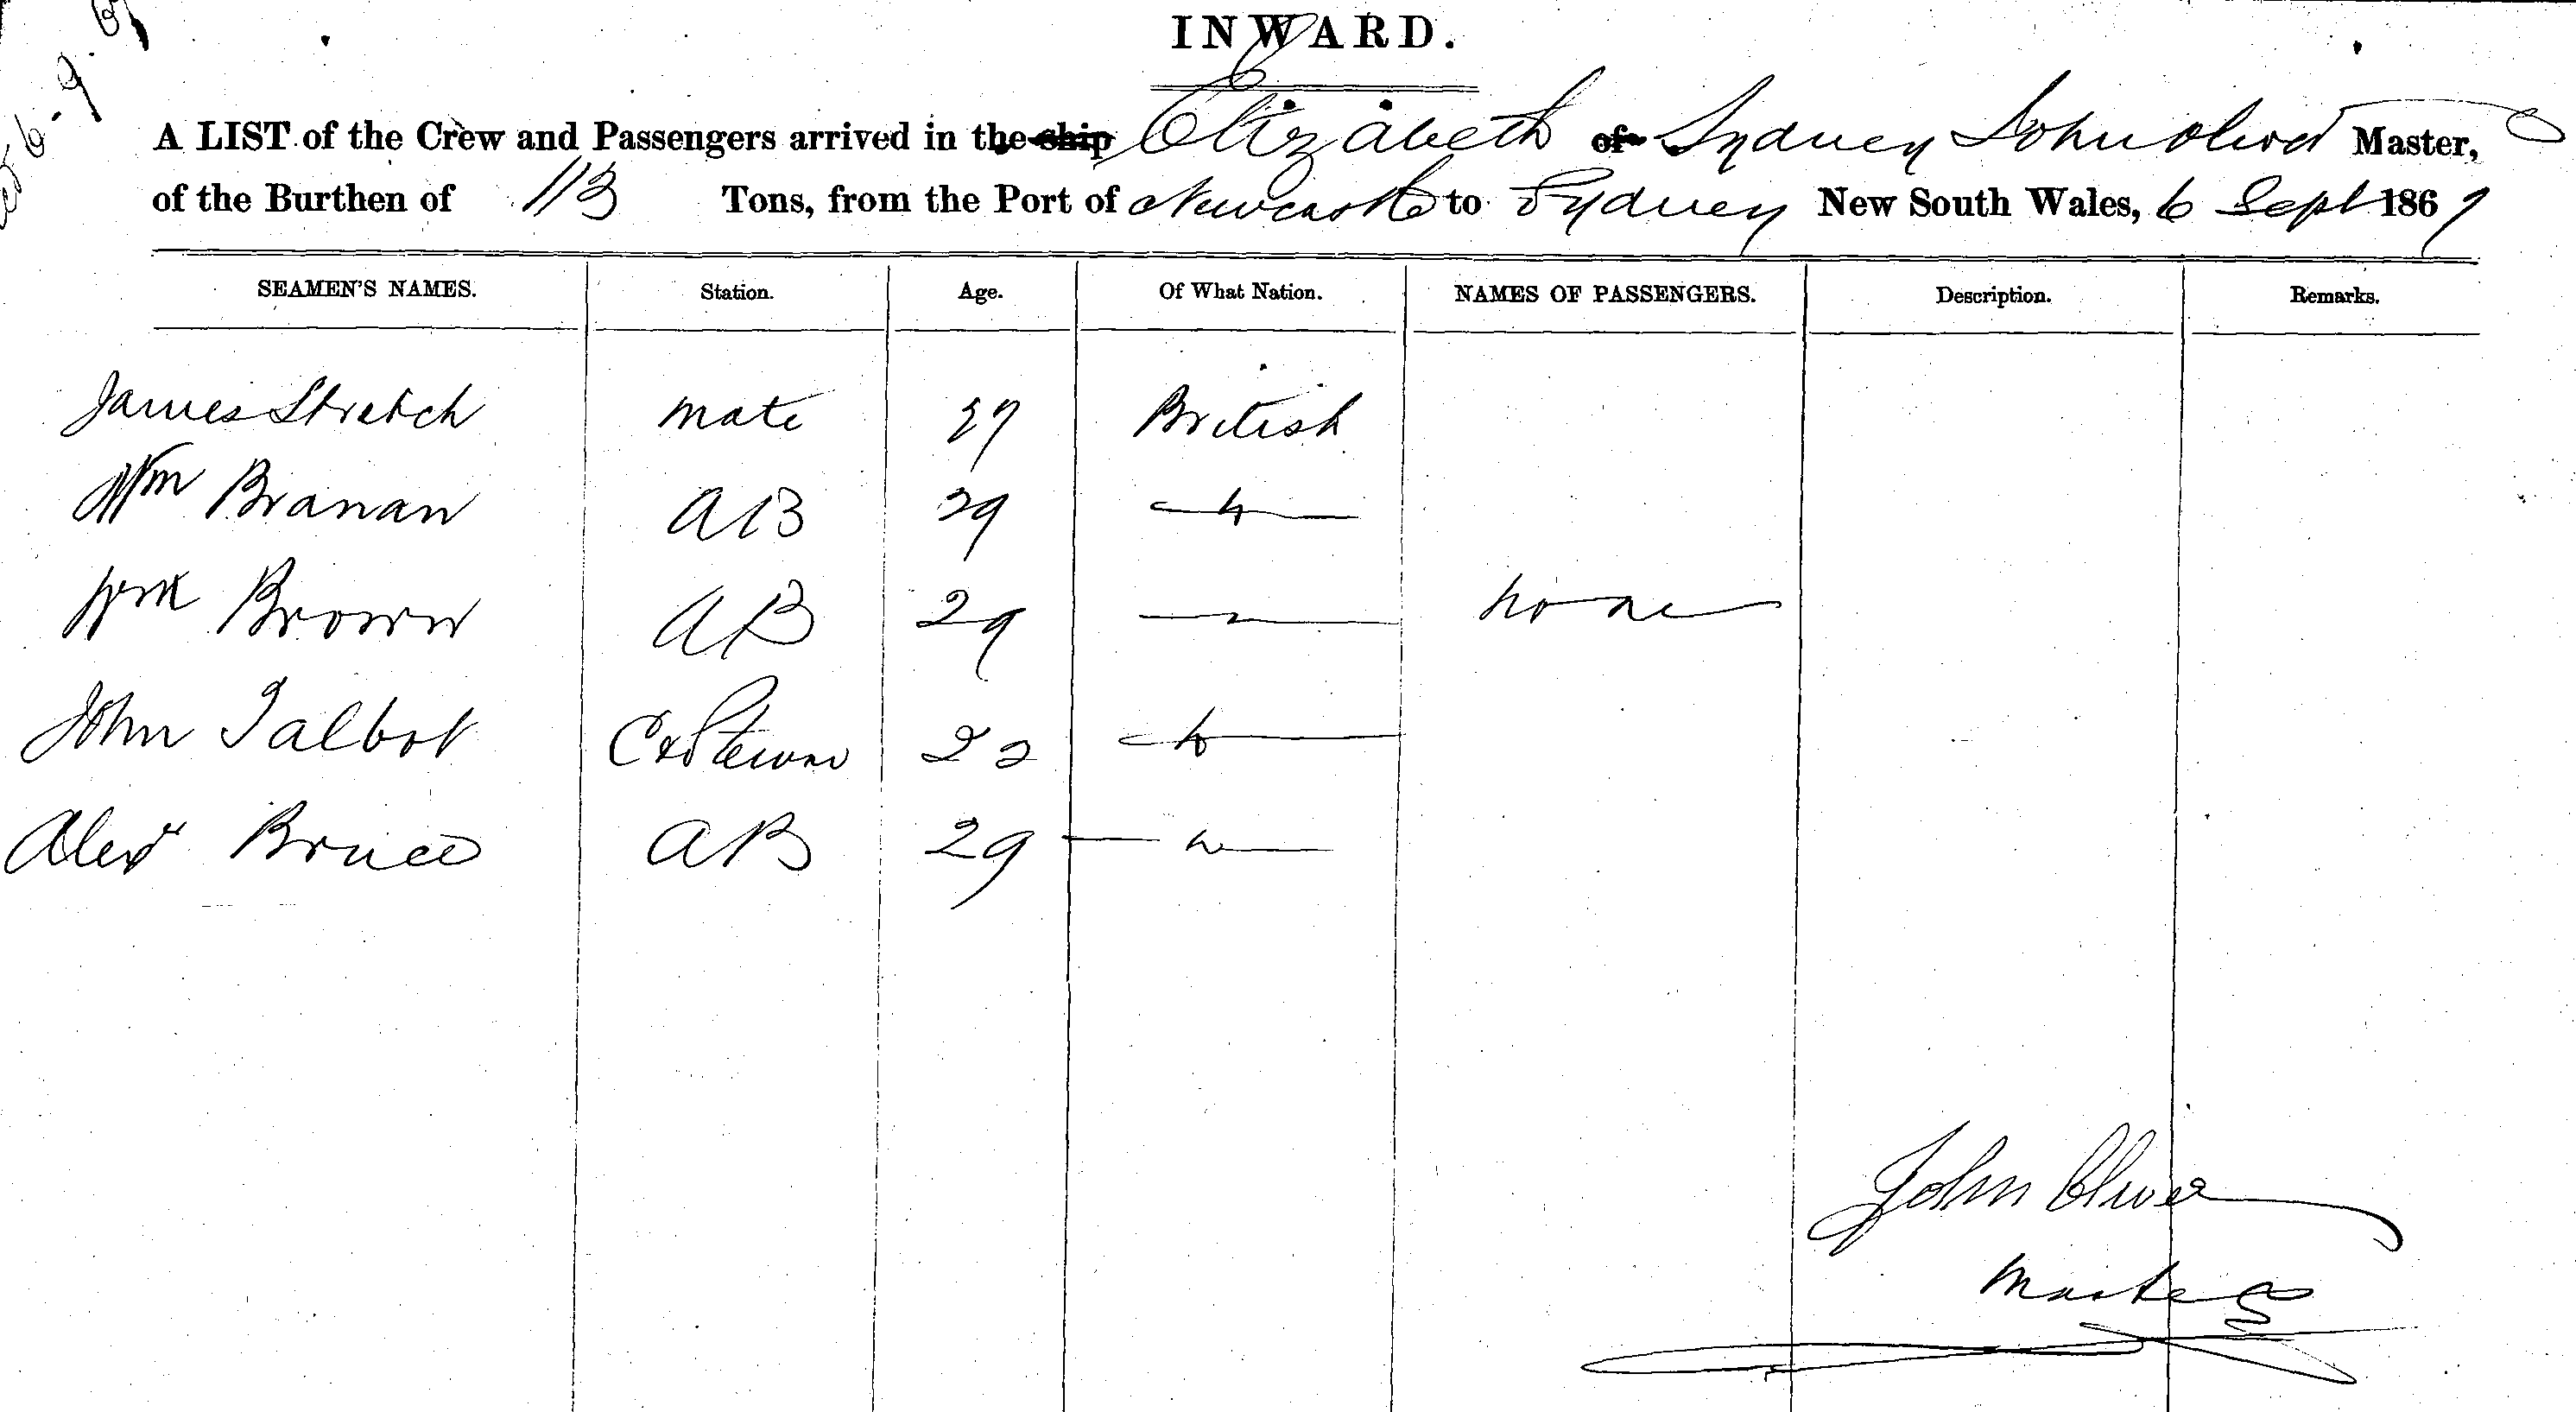 INWARD.
A LIST of the Crew and Passengers arrived in the ship Elizabeth of Sydney John Oliver Master,
of the Burthen of 113 Tons, from the Port of Newcastle to Sydney New South Wales, 6 Sept 1867
SEAMEN'S NAMES. Station. Age. Of What Nation. NAMES OF PASSENGERS. Description. Remarks.
James Stretch mate British
Wm Branan AB 29
Wm Brown AB 29 none
John Talbot 22
Alexr Bruce AB 29
John Oliver
Master